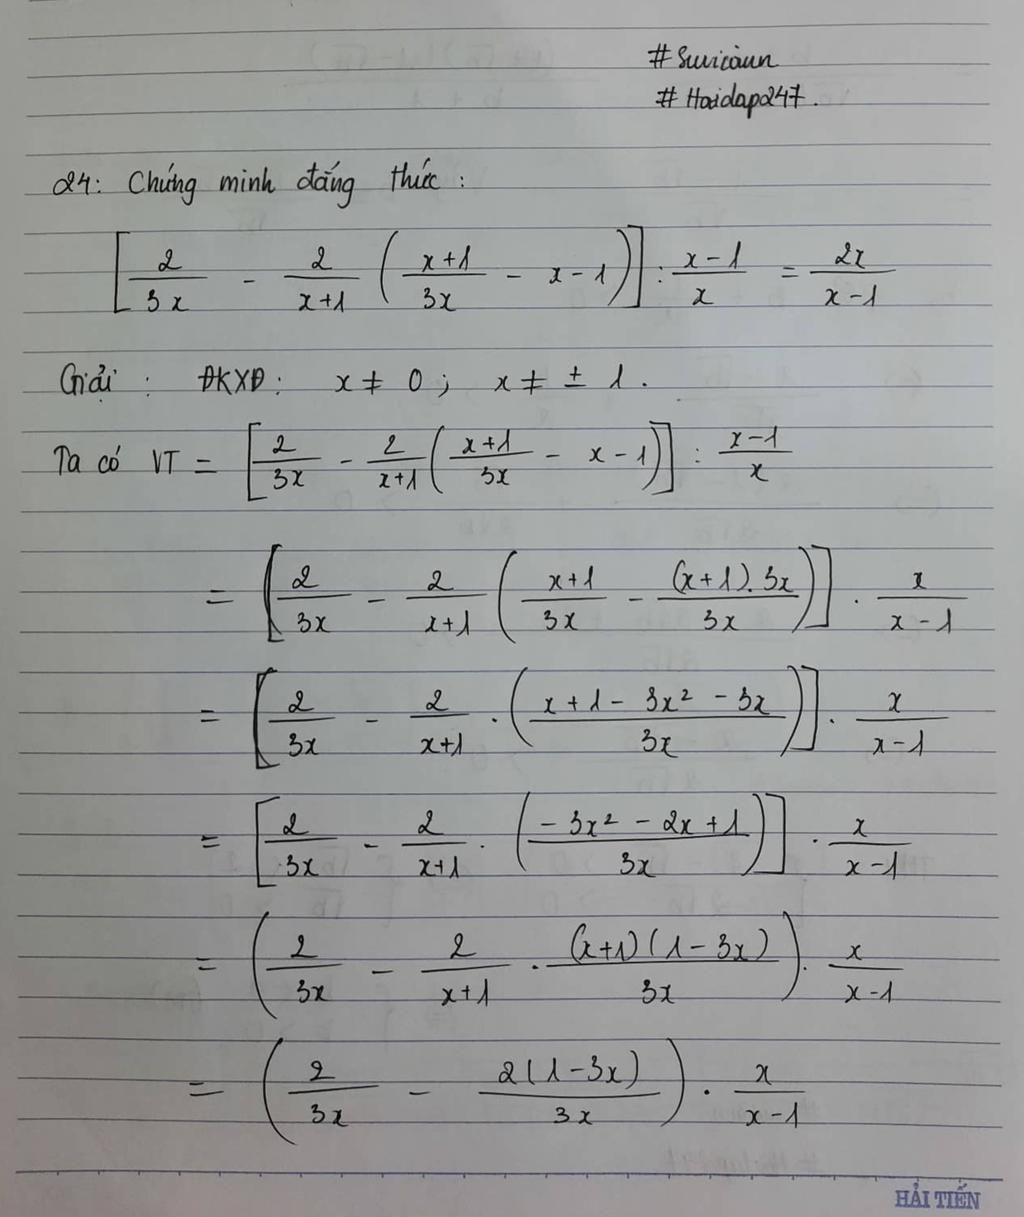 # Suvicàun
# Hoidap247.
24: Chứng minh đẳng thức:
[2/3x - 2/x+1 (x+1/3x - x-1)] : x-1/x = 2x/x-1
Giải: ĐKXĐ: x ≠ 0; x ≠ ± 1.
Ta có VT = [2/3x - 2/x+1 (x+1/3x - x-1)] : x-1/x
= [2/3x - 2/x+1 (x+1/3x - (x+1).3x/3x)] . x/x-1
= [2/3x - 2/x+1 . (x+1-3x²-3x/3x)] . x/x-1
= [2/3x - 2/x+1 . (-3x²-2x+1/3x)] . x/x-1
= (2/3x - 2/x+1 . (x+1)(1-3x)/3x) . x/x-1
= (2/3x - 2(1-3x)/3x) . x/x-1
HẢI TIẾN